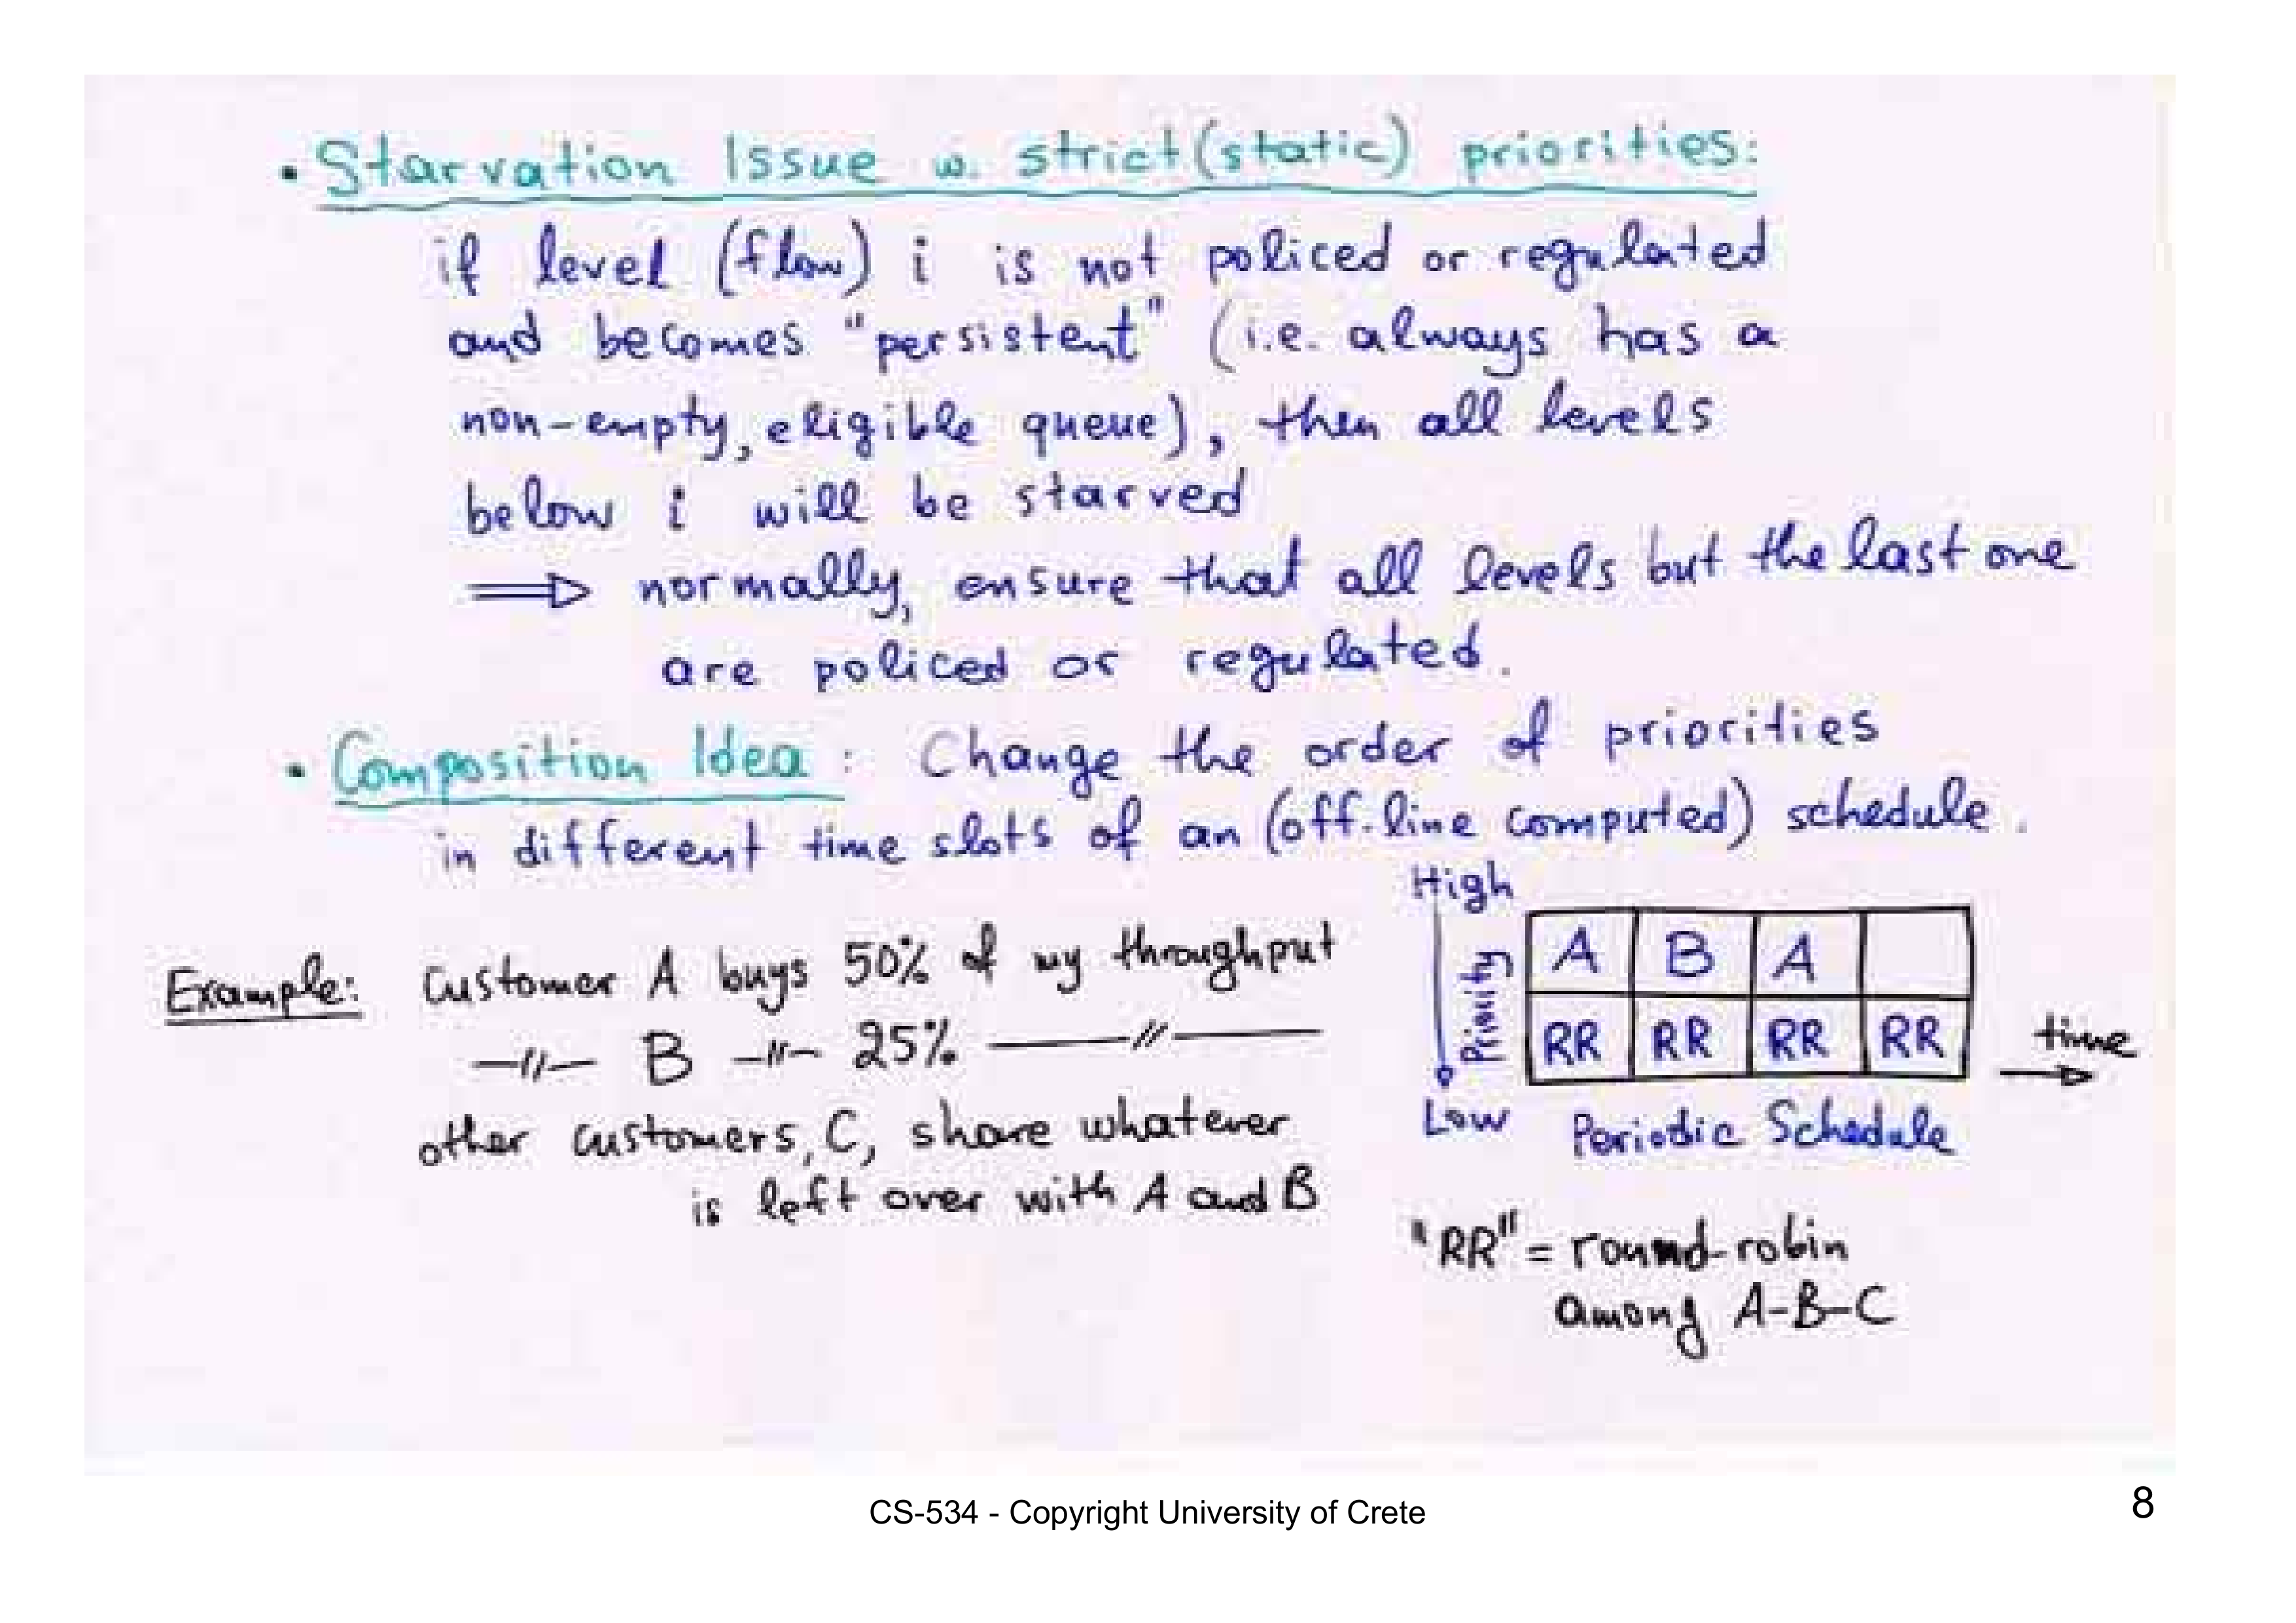 • Starvation Issue w. strict (static) priorities:
if level (flow) i is not policed or regulated
and becomes "persistent" (i.e. always has a
non-empty, eligible queue), then all levels
below i will be starved
⇒ normally, ensure that all levels but the last one
are policed or regulated.
• Composition Idea: Change the order of priorities
in different time slots of an (off-line computed) schedule.
Example: Customer A buys 50% of my throughput
—〃— B —〃— 25% ——〃——
other customers, C, share whatever
is left over with A and B
High
Priority
Low
A B A
RR RR RR RR
time
Periodic Schedule
"RR" = round-robin
among A-B-C
CS-534 - Copyright University of Crete
8